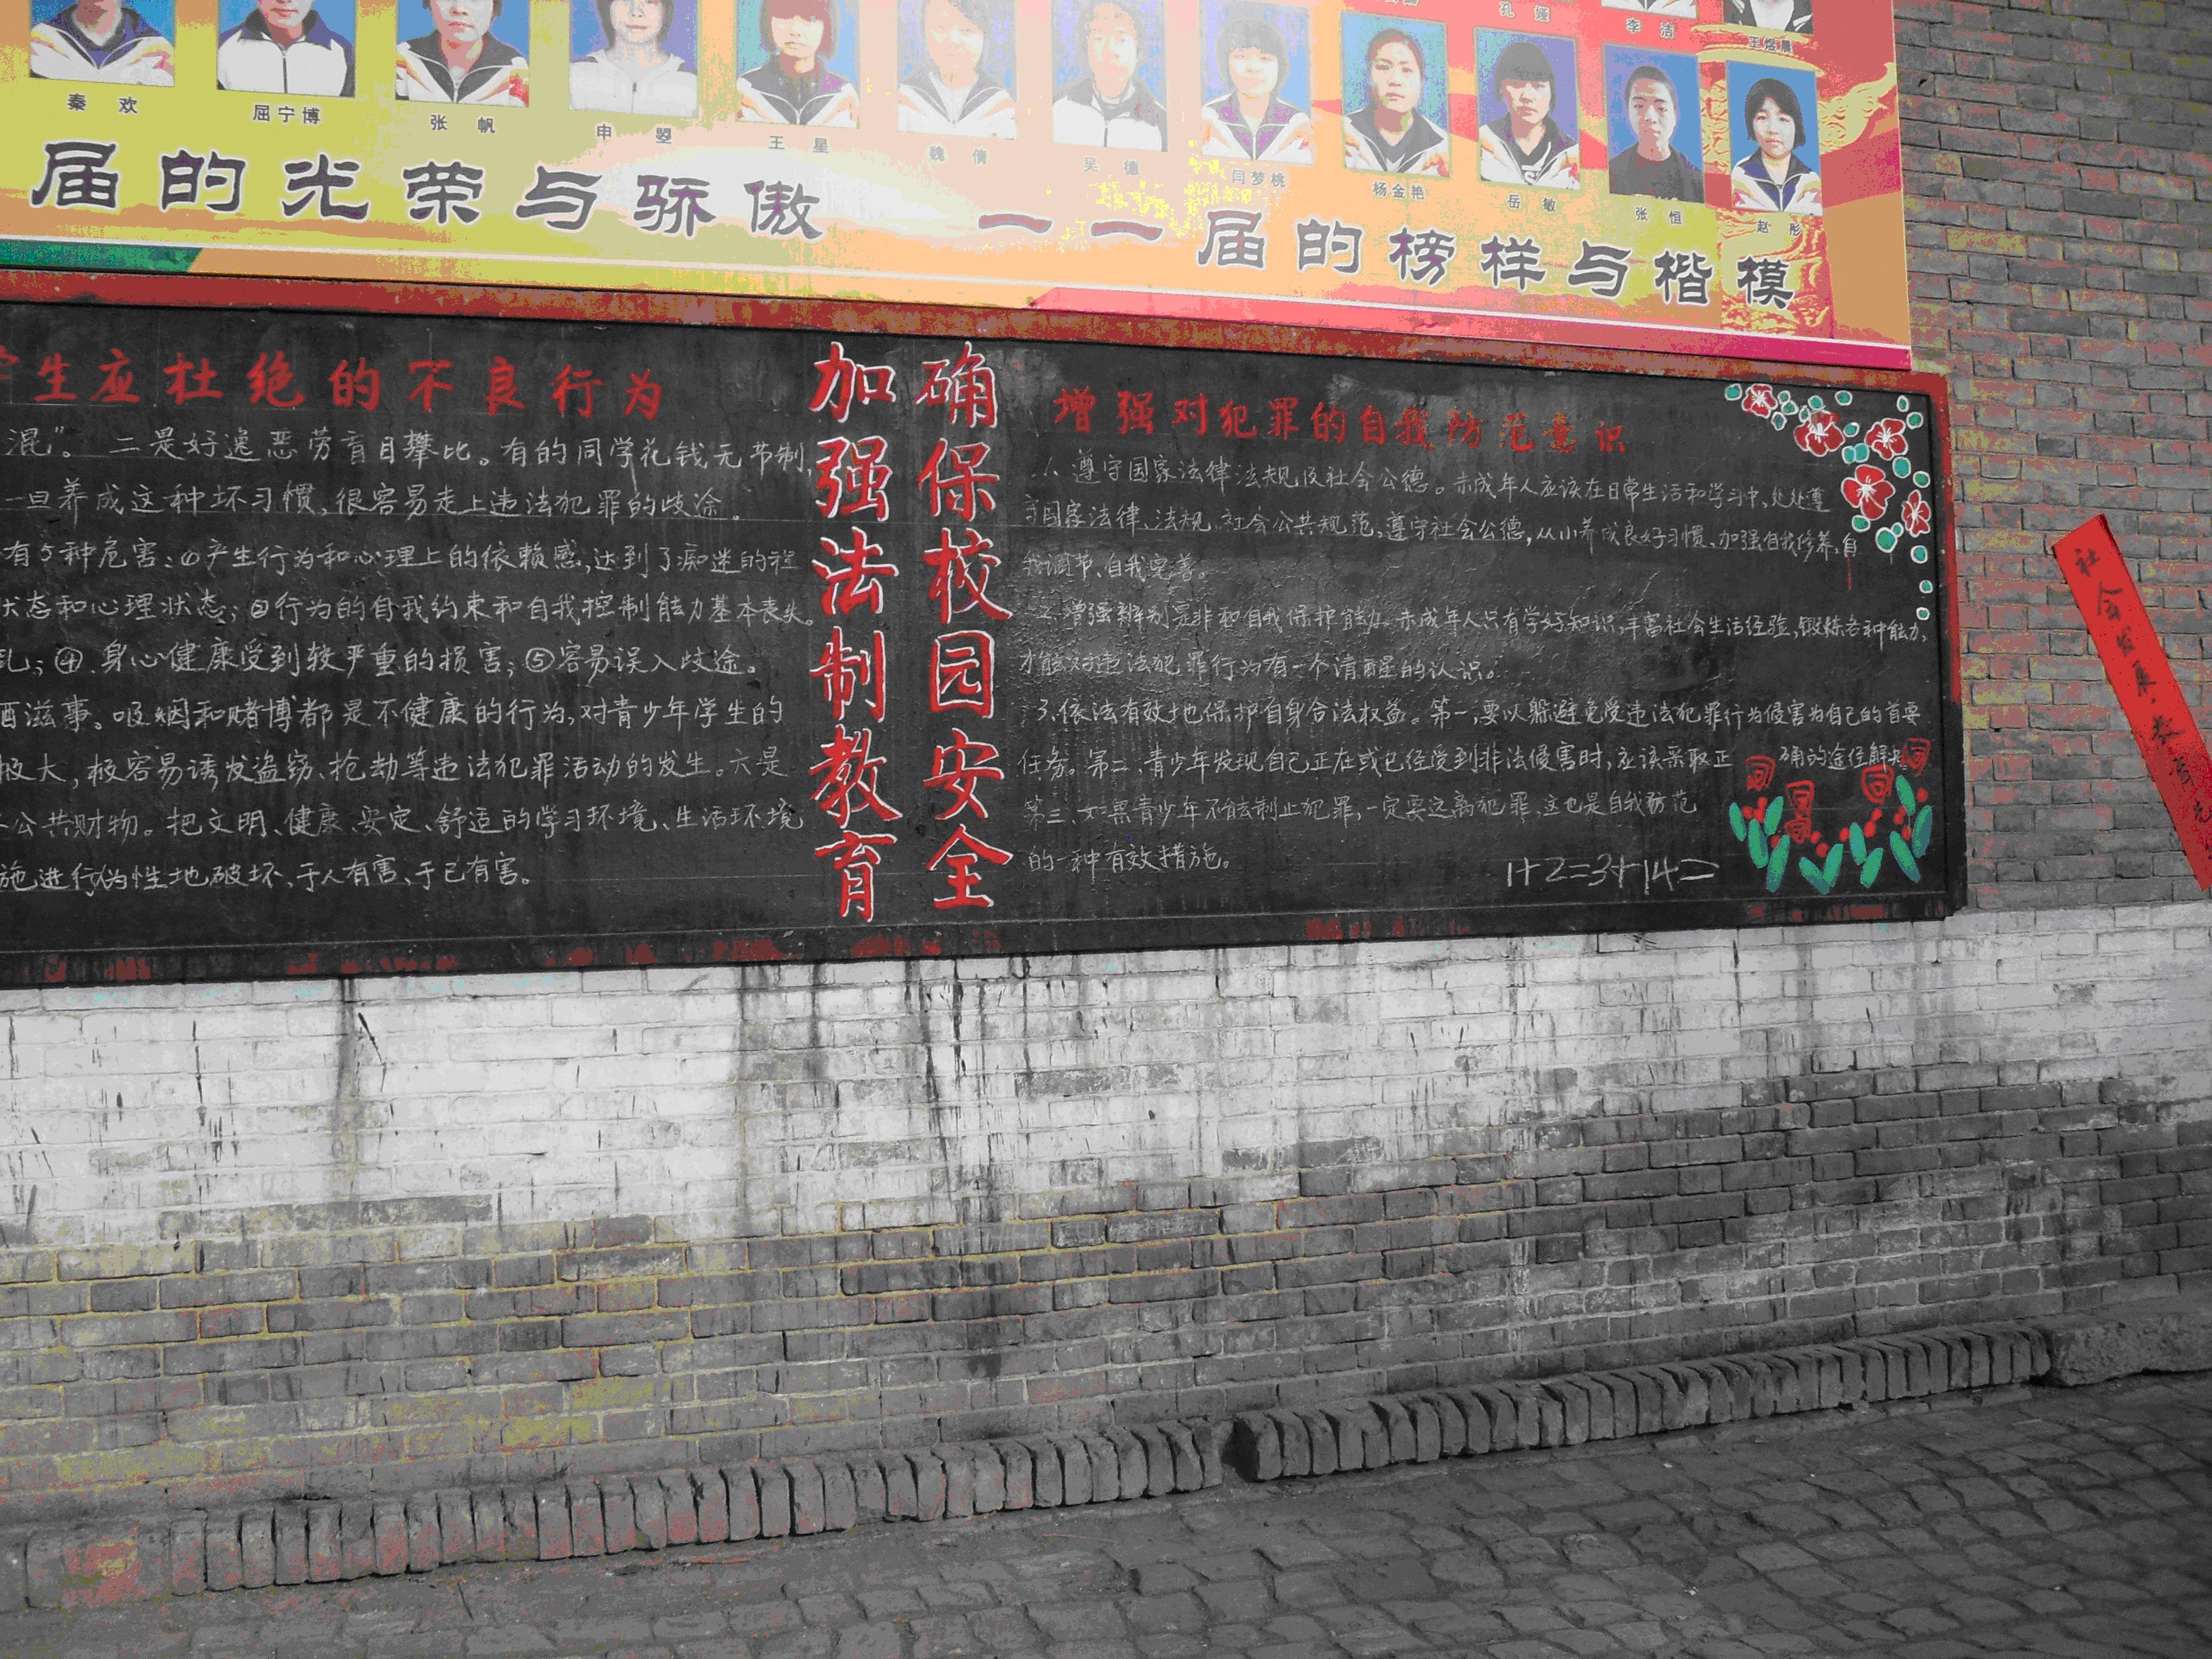 孔 嫤
李 洁
王煜晨
秦 欢
屈宁博
张 帆
申 曌
王 星
魏 倩
吴 德
闫梦桃
杨金艳
岳 敏
张 恒
赵 彤
届的光荣与骄傲
一一届的榜样与楷模
学生应杜绝的不良行为
混”。二是好逸恶劳盲目攀比。有的同学花钱无节制,
一旦养成这种坏习惯,很容易走上违法犯罪的歧途。
有5种危害:①产生行为和心理上的依赖感,达到了痴迷的程
状态和心理状态;②行为的自我约束和自我控制能力基本丧失。
乱;④.身心健康受到较严重的损害;⑤容易误入歧途。
酒滋事。吸烟和赌博都是不健康的行为,对青少年学生的
极大,极容易诱发盗窃、抢劫等违法犯罪活动的发生。六是
公共财物。把文明、健康、安定、舒适的学习环境、生活环境
施进行伪性地破坏,于人有害,于己有害。
加强法制教育
确保校园安全
增强对犯罪的自我防范意识
1、遵守国家法律法规及社会公德。未成年人应该在日常生活和学习中,处处遵
守国家法律、法规、社会公共规范,遵守社会公德,从小养成良好习惯、加强自我修养,自
我调节、自我完善。
二、增强辨别是非和自我保护能力。未成年人只有学好知识,丰富社会生活经验,锻炼各种能力,
才能对违法犯罪行为有一个清醒的认识。
3、依法有效地保护自身合法权益。第一,要以躲避免受违法犯罪行为侵害为自己的首要
任务。第二、青少年发现自己正在或已经受到非法侵害时,应该采取正确的途径解决
第三、如果青少年不能制止犯罪,一定要远离犯罪,这也是自我防范
的一种有效措施。
1+2=3+14=
社会发展